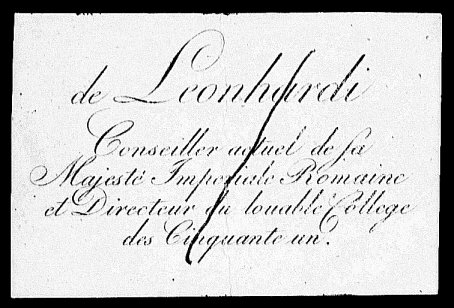 de Leonhardi
Conseiller actuel de sa
Majesté Imperiale Romaine
et Directeur du louable College
des Cinquante un.